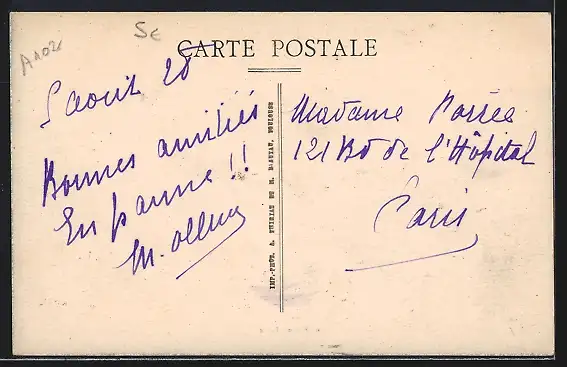 5e
CARTE POSTALE
5 août 28
Bonnes amitiés
En panne !!
Madame
121 Bd de l'Hôpital
Paris
IMP.-PHOT. A. THIRIAT DE TOULOUSE